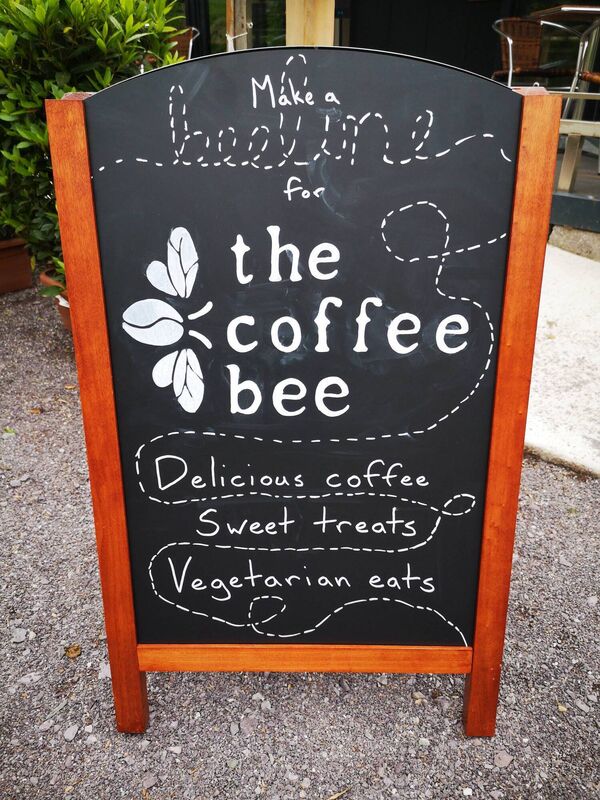 Make a
beeline
for
the
coffee
bee
Delicious coffee
Sweet treats
Vegetarian eats